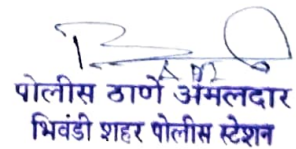 पोलीस ठाणे अंमलदार
भिवंडी शहर पोलीस स्टेशन